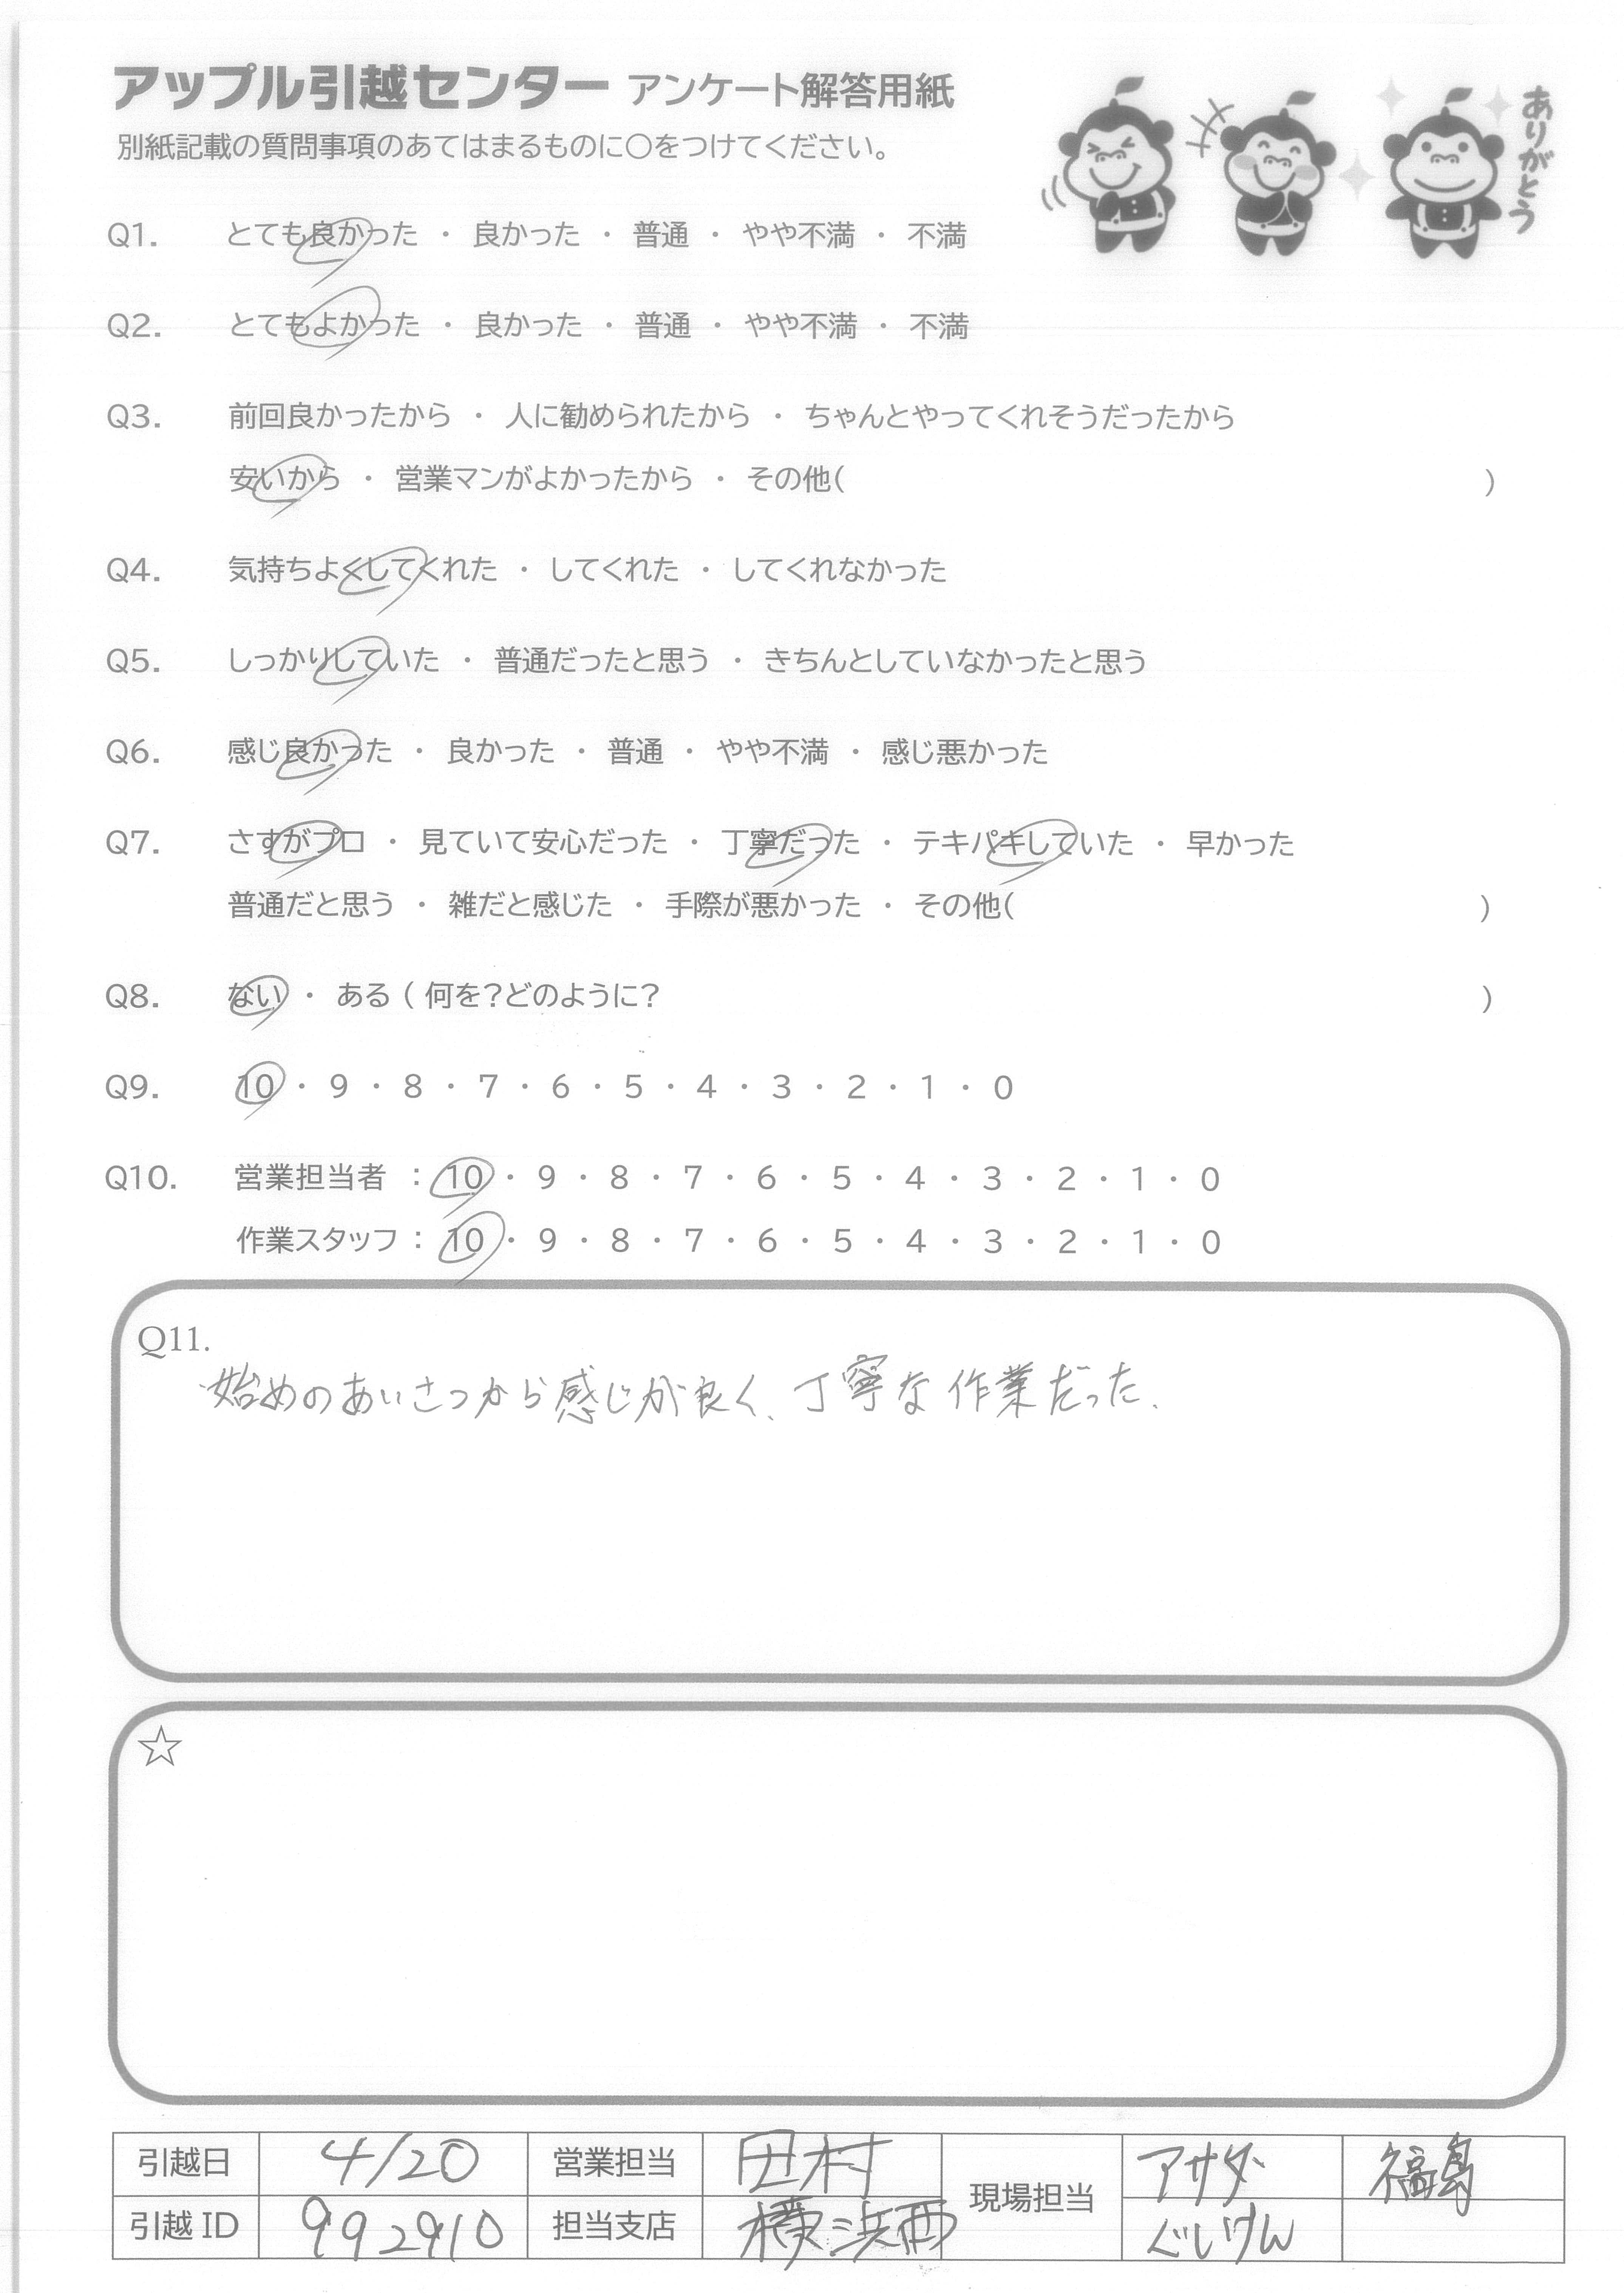 アップル引越センター アンケート解答用紙
別紙記載の質問事項のあてはまるものに○をつけてください。
ありがとう
Q1. とても良かった ・ 良かった ・ 普通 ・ やや不満 ・ 不満
Q2. とてもよかった ・ 良かった ・ 普通 ・ やや不満 ・ 不満
Q3. 前回良かったから ・ 人に勧められたから ・ ちゃんとやってくれそうだったから
安いから ・ 営業マンがよかったから ・ その他( )
Q4. 気持ちよくしてくれた ・ してくれた ・ してくれなかった
Q5. しっかりしていた ・ 普通だったと思う ・ きちんとしていなかったと思う
Q6. 感じ良かった ・ 良かった ・ 普通 ・ やや不満 ・ 感じ悪かった
Q7. さすがプロ ・ 見ていて安心だった ・ 丁寧だった ・ テキパキしていた ・ 早かった
普通だと思う ・ 雑だと感じた ・ 手際が悪かった ・ その他( )
Q8. ない ・ ある ( 何を?どのように? )
Q9. 10 ・ 9 ・ 8 ・ 7 ・ 6 ・ 5 ・ 4 ・ 3 ・ 2 ・ 1 ・ 0
Q10. 営業担当者 : 10 ・ 9 ・ 8 ・ 7 ・ 6 ・ 5 ・ 4 ・ 3 ・ 2 ・ 1 ・ 0
作業スタッフ : 10 ・ 9 ・ 8 ・ 7 ・ 6 ・ 5 ・ 4 ・ 3 ・ 2 ・ 1 ・ 0
Q11.
始めのあいさつから感じが良く、丁寧な作業だった、
☆
引越日 4/20 営業担当 田村 現場担当 アサダ 福島
引越ID 992910 担当支店 横浜西 ぐしけん